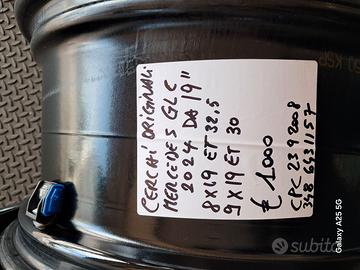 CERCHI ORIGINALI
MERCEDES GLC
2024 DA 19"
8X19 ET 32,5
9X19 ET 30
€ 1000
348 6431157
subito
Galaxy A25 5G